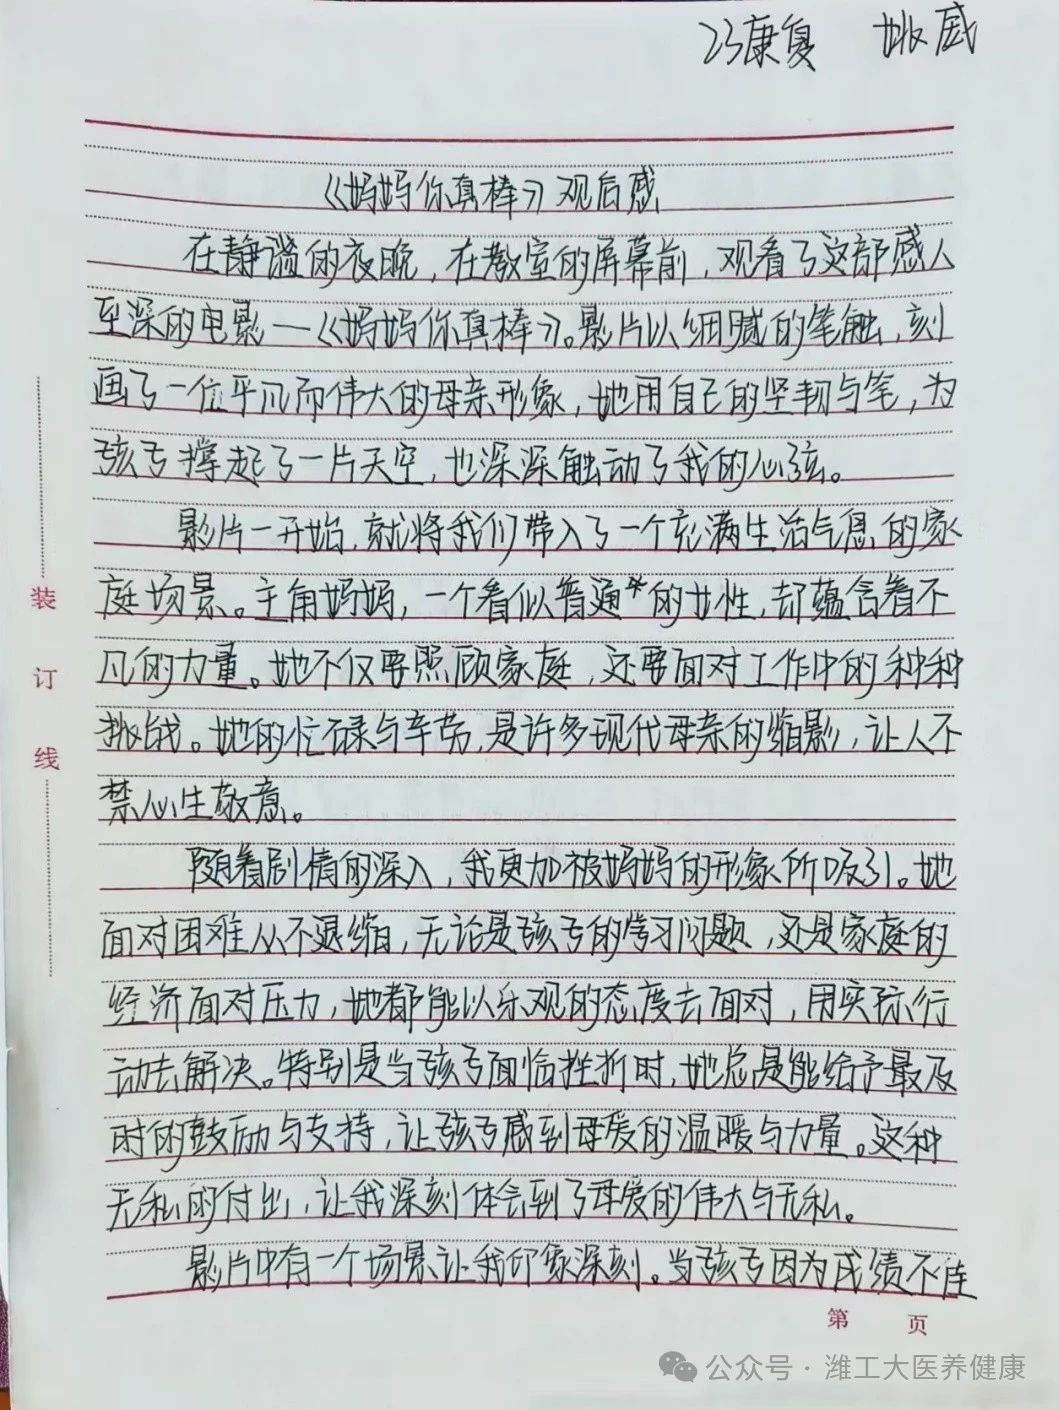 23康复 姚威
《妈妈你真棒》观后感
在静谧的夜晚,在教室的屏幕前,观看了这部感人
至深的电影—《妈妈你真棒》。影片以细腻的笔触,刻
画了一位平凡而伟大的母亲形象,她用自己的坚韧与笔,为
孩子撑起了一片天空,也深深触动了我的心弦。
影片一开始,就将我们带入了一个充满生活气息的家
庭场景。主角妈妈,一个看似普通的女性,却蕴含着不
凡的力量。她不仅要照顾家庭,还要面对工作中的种种
挑战。她的忙碌与辛劳,是许多现代母亲的缩影,让人不
禁心生敬意。
随着剧情的深入,我更加被妈妈的形象所吸引。她
面对困难从不退缩,无论是孩子的学习问题,还是家庭的
经济面对压力,她都能以乐观的态度去面对,用实际行
动去解决。特别是当孩子面临挫折时,她总是能给予最及
时的鼓励与支持,让孩子感到母爱的温暖与力量。这种
无私的付出,让我深刻体会到了母爱的伟大与无私。
影片中有一个场景让我印象深刻。当孩子因为成绩不佳
装
订
线
第 页
公众号·潍工大医养健康